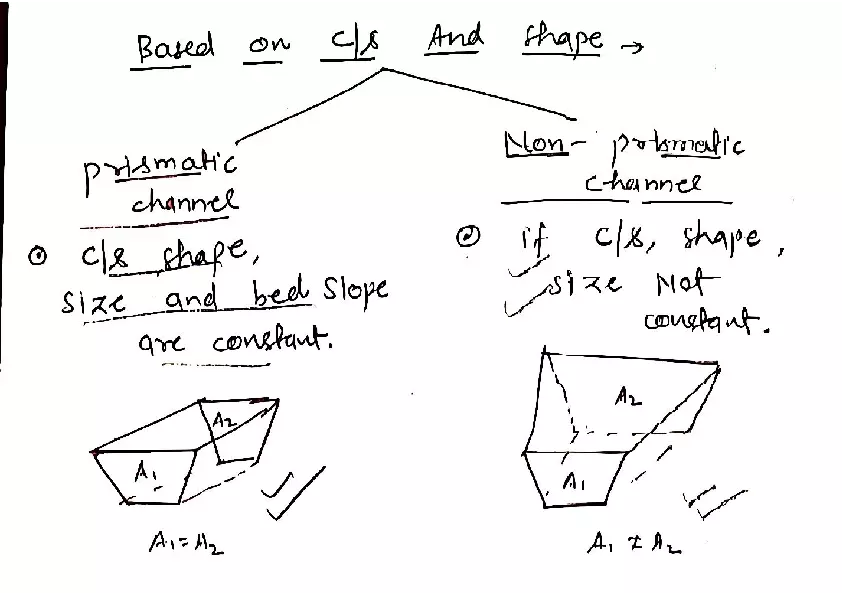 Based on c/s And shape →
prismatic
channel
c/s shape,
size and bed slope
are constant.
A1
A2
A1 = A2
Non- prismatic
channel
if c/s, shape,
size Not
constant.
A2
A1
A1 ≠ A2